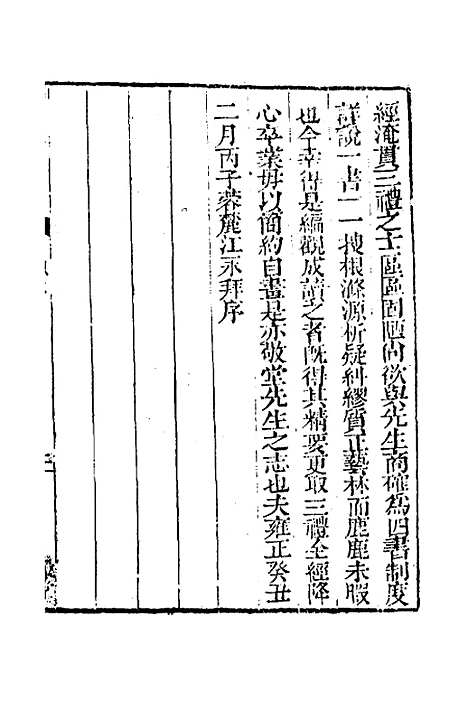 經淹貫三禮之士區區固陋尚欲與先生商確為四書制度
詳說一書一一搜根滌源析疑糾繆質正藝林而鹿鹿未暇
也今幸得是編觀成讀之者既得其精要更取三禮全經降
心卒業毋以簡約自畫是亦敬堂先生之志也夫雍正癸丑
二月丙子蓉麓江永拜序